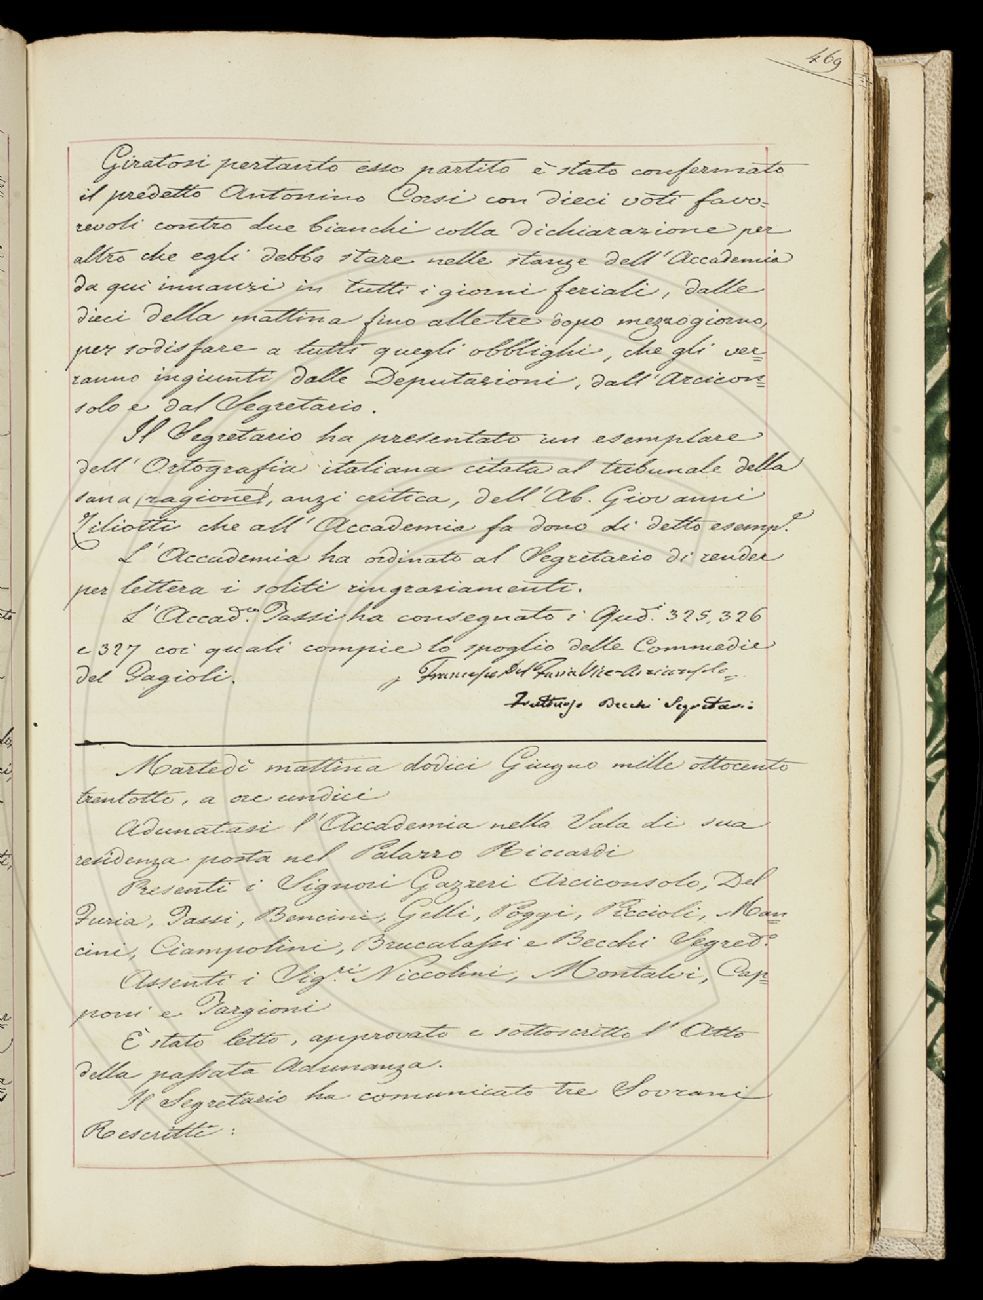 469
Giratosi pertanto esso partito è stato confermato
il predetto Antonino Corsi con dieci voti favo=
revoli contro due bianchi colla dichiarazione per
altro che egli debba stare nelle stanze dell'Accademia
da qui innanzi in tutti i giorni feriali, dalle
dieci della mattina fino alle tre dopo mezzogiorno,
per sodisfare a tutti quegli obblighi, che gli ver=
ranno ingiunti dalle Deputazioni, dall'Arcicon=
solo e dal Segretario.
Il Segretario ha presentato un esemplare
dell'Ortografia italiana citata al tribunale della
sana ragione, anzi critica, dell'Ab. Giovanni
Ziliotti che all'Accademia fa dono di detto esemp.e
L'Accademia ha ordinato al Segretario di render
per lettera i soliti ringraziamenti.
L'Accad.co Tassi ha consegnato i Qud.i 325, 326
e 327 coi quali compie lo spoglio delle Commedie
del Fagioli.
Francesco Del Furia Vice-Arciconsolo
Fruttuoso Becchi Segretario
Martedì mattina dodici Giugno mille ottocento
trentotto, a ore undici
Adunatasi l'Accademia nella Sala di sua
residenza posta nel Palazzo Riccardi
Presenti i Signori Gazzeri Arciconsolo, Del
Furia, Tassi, Bencini, Gelli, Poggi, Piccioli, Man=
cini, Ciampolini, Brucalassi e Becchi Segred.o
Assenti i Sig.ri Niccolini, Montalvi, Cap=
poni e Targioni
È stato letto, approvato e sottoscritto l'Atto
della passata Adunanza.
Il Segretario ha comunicato tre Sovrani
Rescritti: